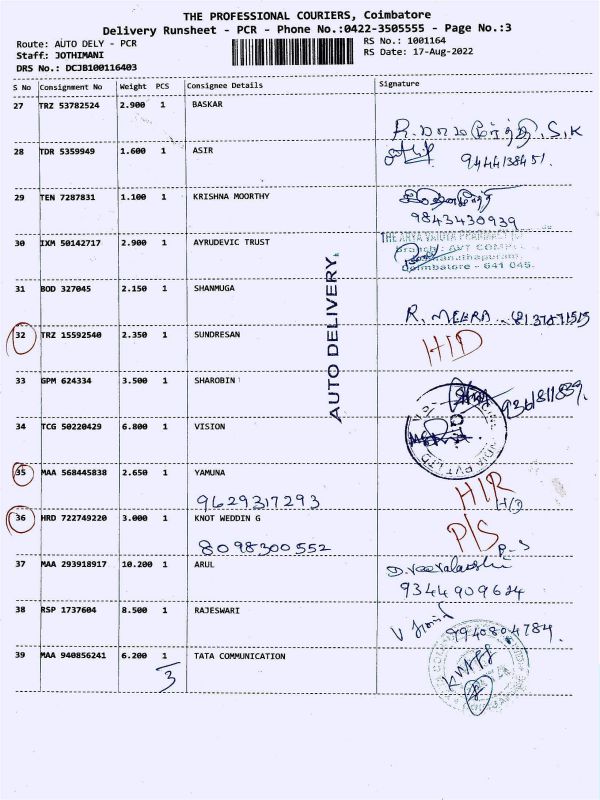 THE PROFESSIONAL COURIERS, Coimbatore
Delivery Runsheet - PCR - Phone No.:0422-3505555 - Page No.:3
Route: AUTO DELY - PCR
RS No.: 1001164
Staff: JOTHIMANI
RS Date: 17-Aug-2022
DRS No.: DCJB100116403
S No Consignment No Weight PCS Consignee Details Signature
27 TRZ 53782524 2.900 1 BASKAR
28 TDR 5359949 1.600 1 ASIR
9444138451.
29 TEN 7287831 1.100 1 KRISHNA MOORTHY
9843430939
30 IXM 50142717 2.900 1 AYRUDEVIC TRUST
Coimbatore - 641 045.
AUTO DELIVERY.
31 BOD 327045 2.150 1 SHANMUGA
R. MEERA
32 TRZ 15592540 2.350 1 SUNDRESAN
H/D
33 GPM 624334 3.500 1 SHAROBIN
34 TCG 50220429 6.800 1 VISION
35 MAA 568445838 2.650 1 YAMUNA
9629317293
H/R
H/D
36 HRD 722749220 3.000 1 KNOT WEDDIN G
8098300552
P/S
P-S
37 MAA 293918917 10.200 1 ARUL
9344909624
38 RSP 1737604 8.500 1 RAJESWARI
9940804784.
39 MAA 940856241 6.200 1 TATA COMMUNICATION
3